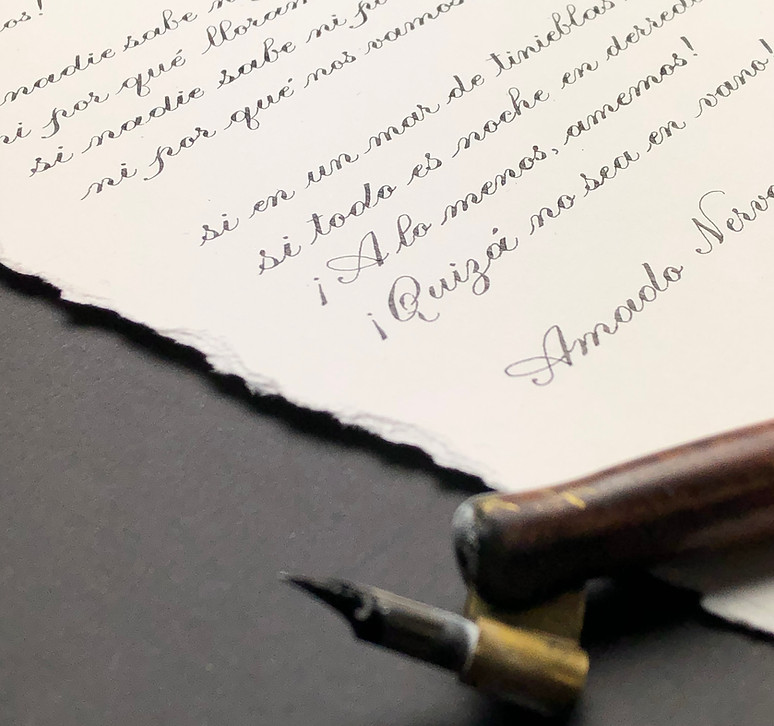 os!
nadie sabe
ni por qué
si nadie sabe ni
ni por qué nos vamos
si en un mar de tinieblas
si todo es noche en
¡A lo menos, amemos!
¡Quizá no sea en vano!
Amado